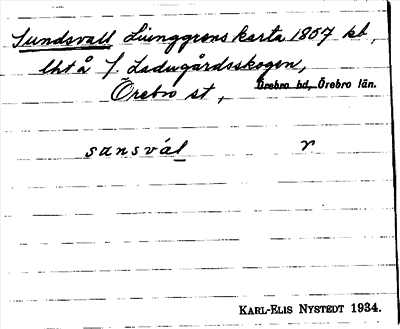 Sundsvall Ljunggrens karta 1857 kb,
lht å f. Ladugårdsskogen,
Örebro st, Örebro hd, Örebro län.
sansvál r
KARL-ELIS NYSTEDT 1934.